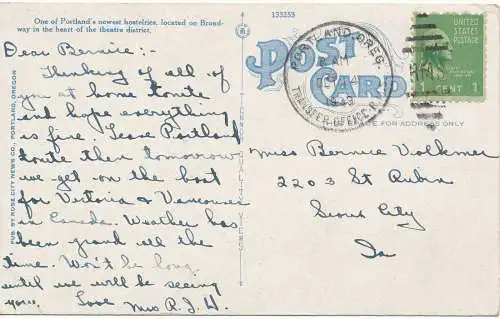 One of Portland's newest hostelries, located on Broad-
way in the heart of the theatre district.
133253
Dear Bernice:-
Thinking of all of
you at home tonite
and hope everything
is fine. Leave Portland
tonite then tomorrow
we get on the boat
for Victoria & Vancouver
in Canada. Weather has
been grand all the
time. Won't be long
until we will be seeing
you.
Love Mrs R.J.H.
PUB. BY ROSE CITY NEWS CO., PORTLAND, OREGON
POST
CARD
PORTLAND, OREG.
AM
TRANSFER OFFICE R.
UNITED
STATES
POSTAGE
CENT 1
FOR ADDRESS ONLY
Miss Bernice Volkmer
2203 St Rubin
Sioux City
Ia